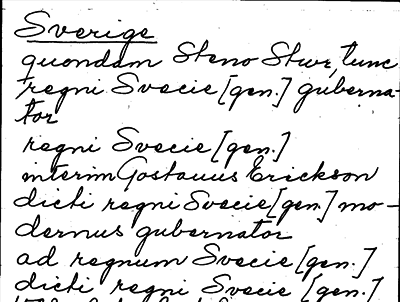 Sverige
quondam Steno Stur, tunc
regni Svecie [gen.] guberna-
tor
regni Svecie [gen.]
interim Gostauus Erickson
dicti regni Svecie [gen.] mo-
dernus gubernator
ad regnum Svecie [gen.]
dicti regni Svecie [gen.]